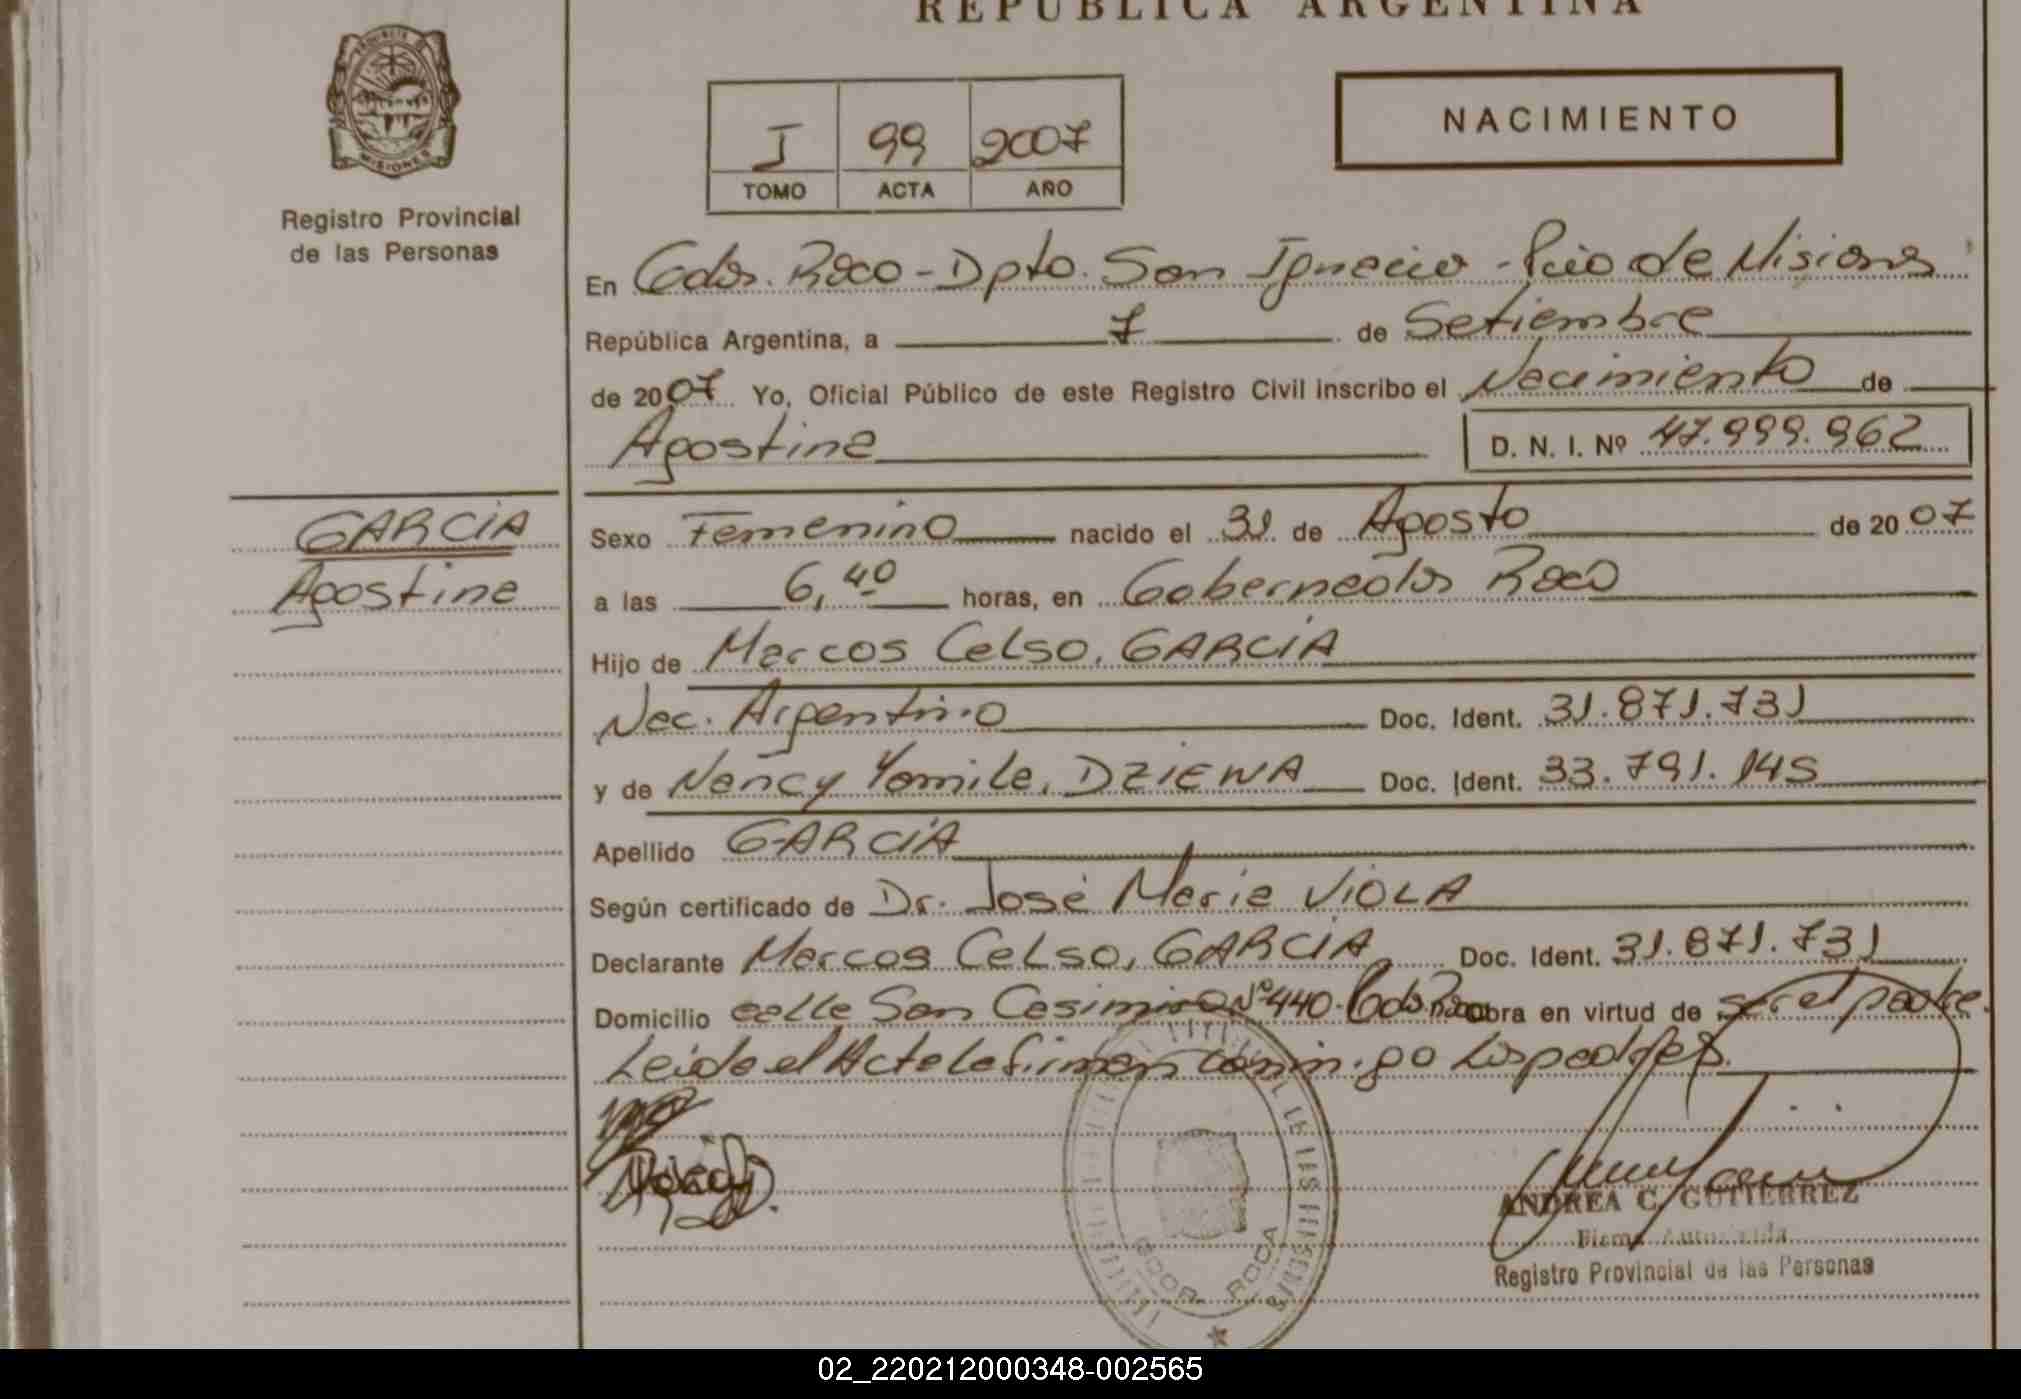 REPUBLICA ARGENTINA
PROVINCIA DE MISIONES
Registro Provincial
de las Personas
I 99 2007
TOMO ACTA AÑO
NACIMIENTO
En Gdor. Roca - Dpto. San Ignacio - Pcia de Misiones
República Argentina, a 7 de Setiembre
de 2007 Yo, Oficial Público de este Registro Civil inscribo el Nacimiento de
Agostina D. N. I. Nº 47.999.962
GARCIA
Agostina
Sexo Femenino nacido el 31 de Agosto de 2007
a las 6,40 horas, en Gobernador Roca
Hijo de Marcos Celso, GARCIA
Nac. Argentino Doc. Ident. 31.871.731
y de Nancy Yamila, DZIEWA Doc. Ident. 33.791.145
Apellido GARCIA
Según certificado de Dr. José Maria VIOLA
Declarante Marcos Celso, GARCIA Doc. Ident. 31.871.731
Domicilio calle San Casimiro Nº 440 - Gdor. Roca Obra en virtud de ser el padre.
Leida el Acta la firman conmigo los padres.
GDOR. ROCA
ANDREA C. GUTIERREZ
Firma Autorizada
Registro Provincial de las Personas
02_220212000348-002565